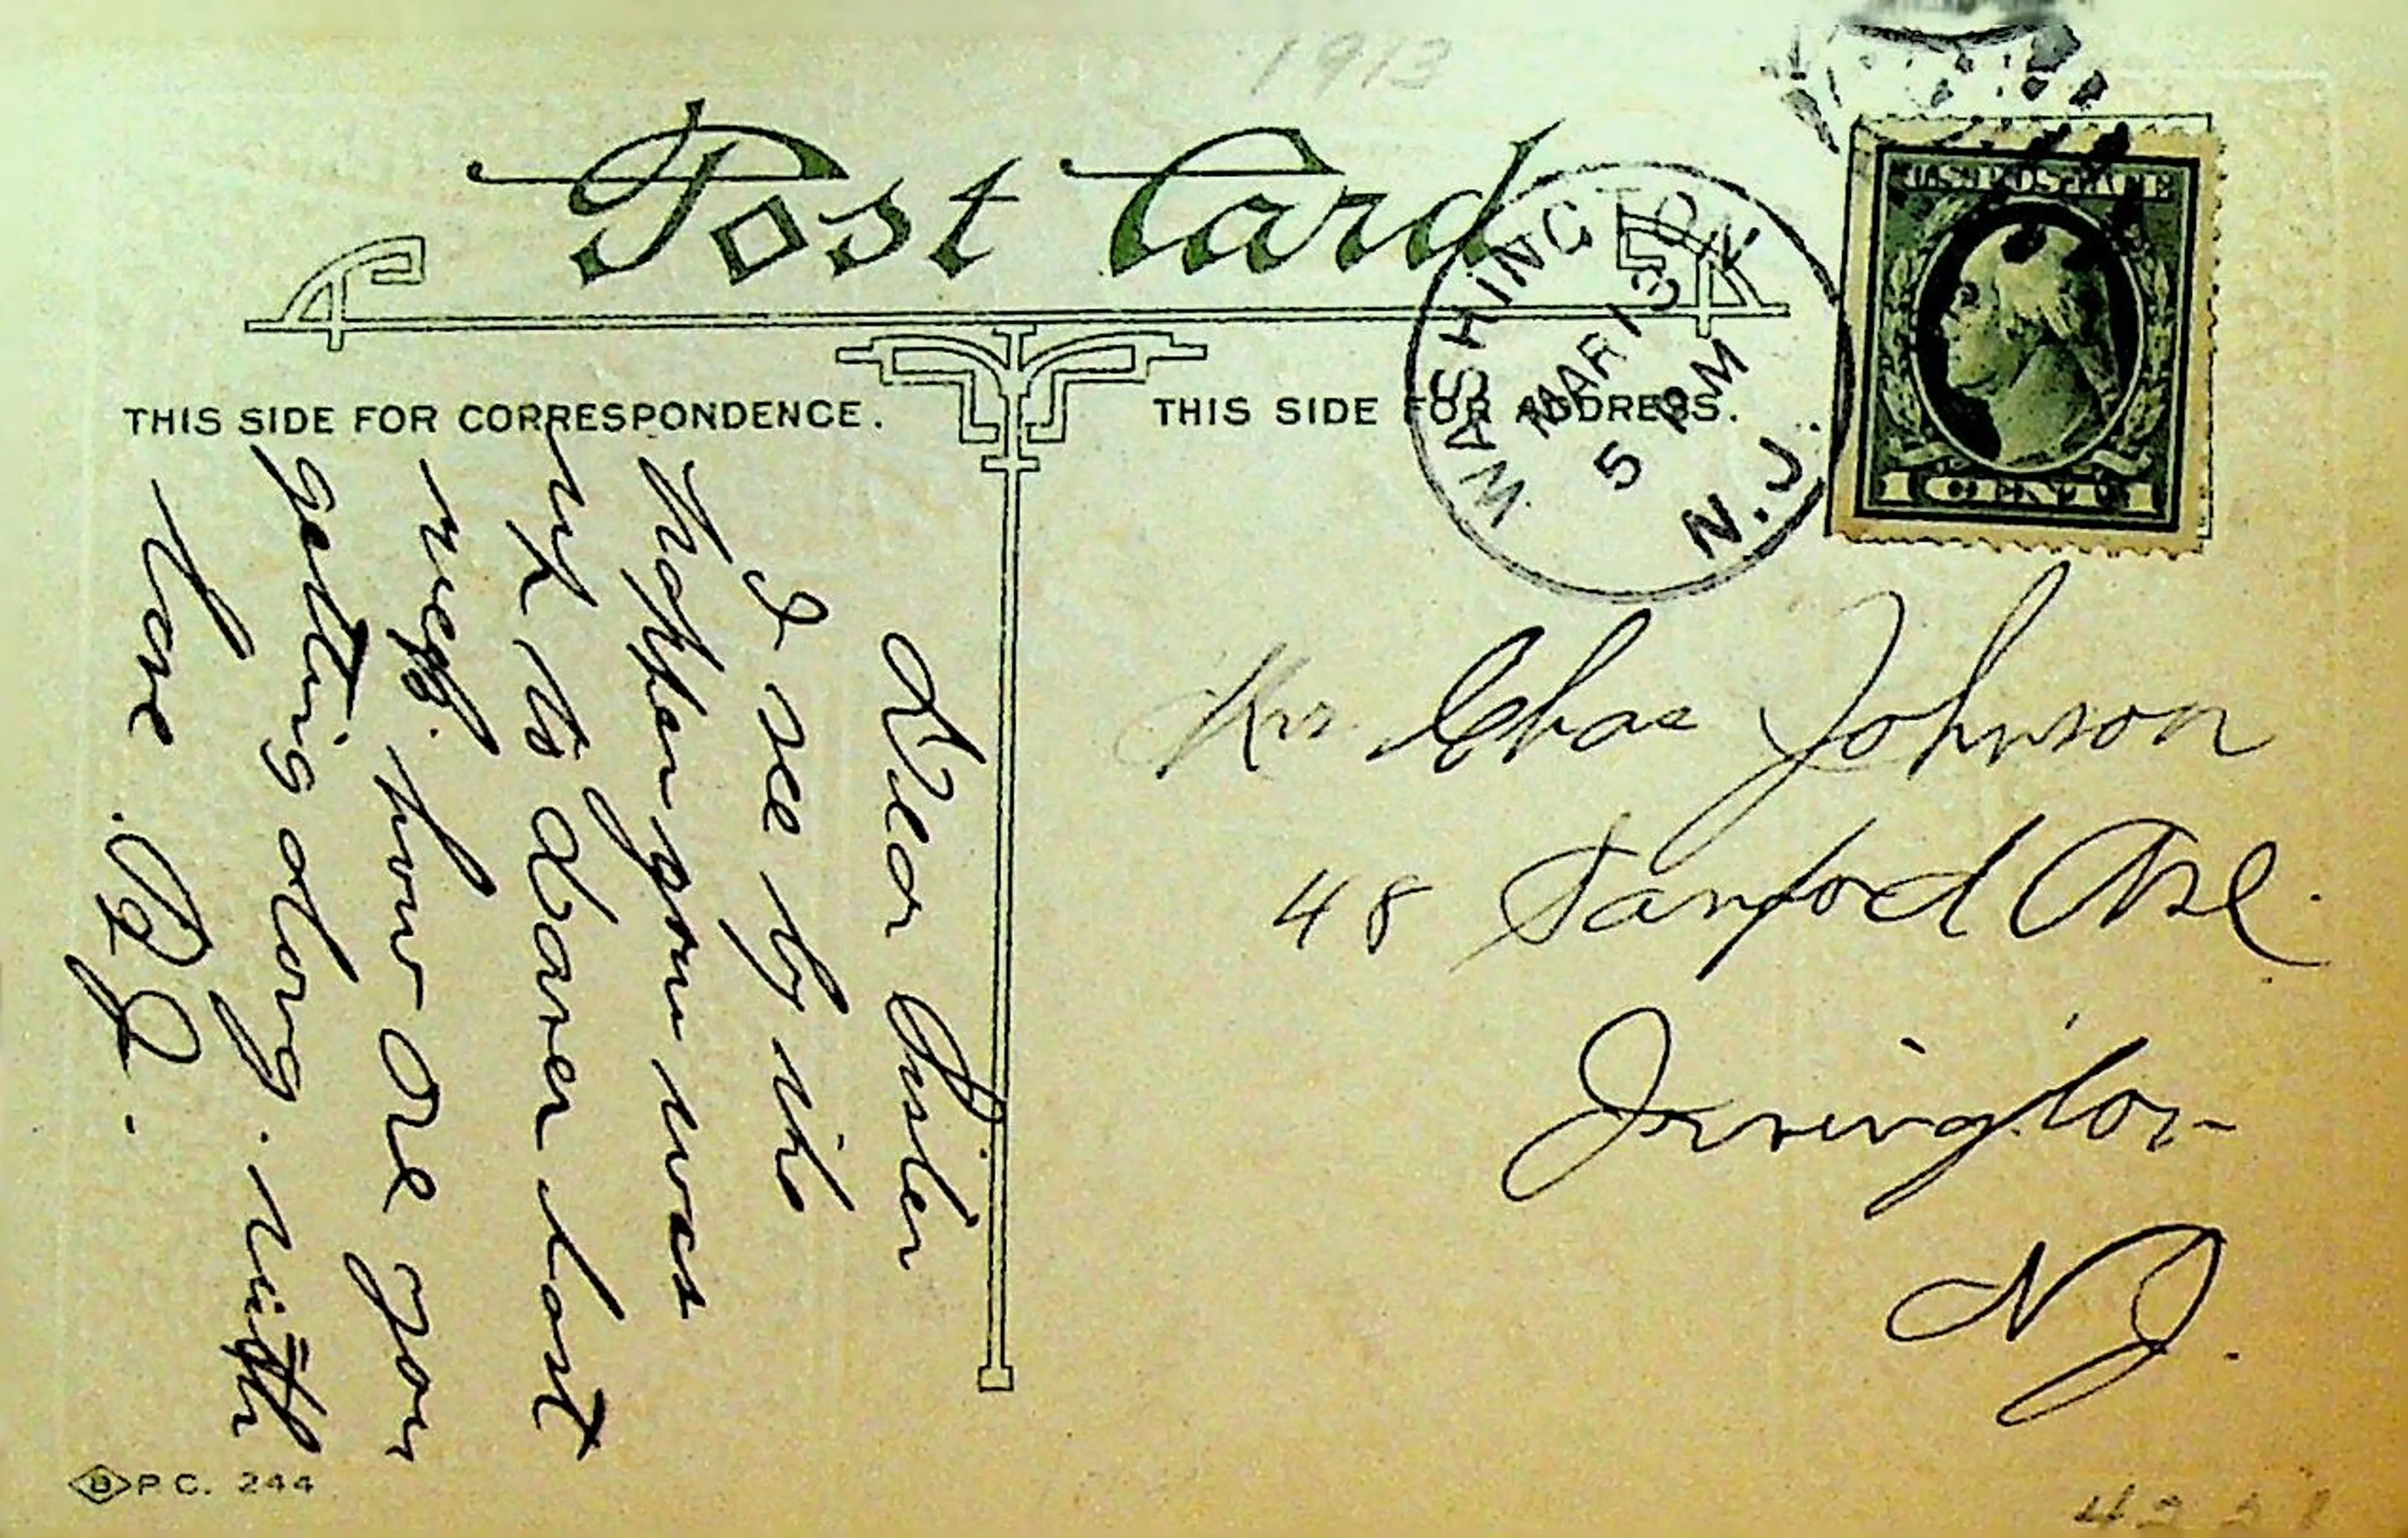 1913
Post Card
WASHINGTON
MAR 13
5 PM
N.J.
U.S. POSTAGE
1 CENT 1
THIS SIDE FOR CORRESPONDENCE.
THIS SIDE FOR ADDRESS.
Dear Sister
I see by the
paper you was
up to Dover last
week. how are you
getting along. with
love. B J.
Mrs. Chas Johnson
48 Sanford Ave.
Irvington
N J.
B P.C. 244